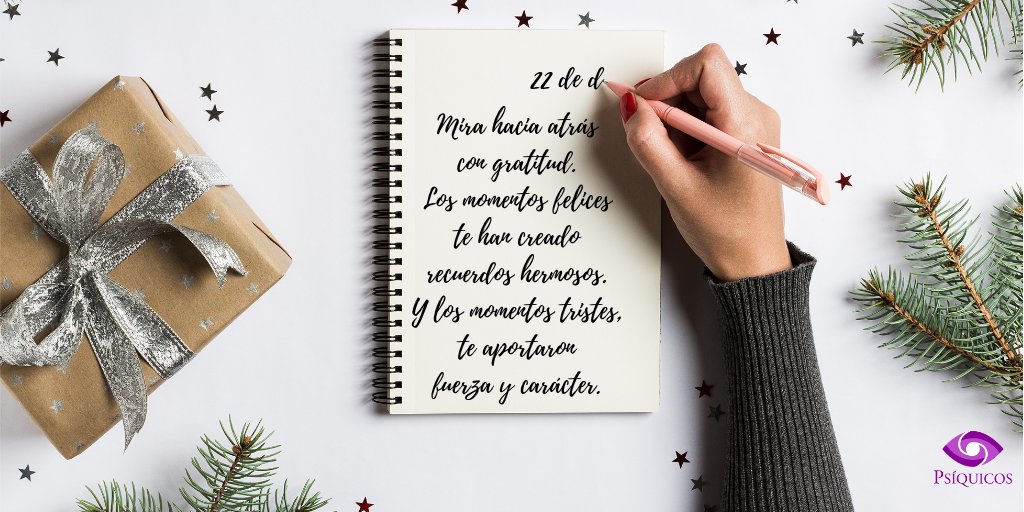 22 de d
Mira hacia atrás
con gratitud.
Los momentos felices
te han creado
recuerdos hermosos.
Y los momentos tristes,
te aportaron
fuerza y carácter.
PSÍQUICOS